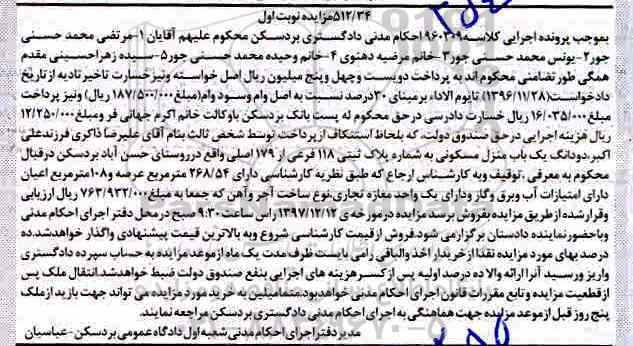 ۵۱۲/۳۴مزایده نوبت اول
بموجب پرونده اجرایی کلاسه۹۶۰۳۰۹احکام مدنی دادگستری بردسکن محکوم علیهم آقایان ۱-مرتضی محمد حسنی
جور۲-یونس محمد حسنی جور۳-خانم مرضیه دهنوی ۴-خانم وحیده محمد حسنی جور۵-سیده زهراحسینی مقدم
همگی طور تضامنی محکوم اند به پرداخت دویست وچهل و پنج میلیون ریال اصل خواسته ونیزخسارت تاخیر تادیه از تاریخ
دادخواست(۱۳۹۶/۱۱/۲۸) تایوم الاداء برمبنای ۳۰درصد نسبت به اصل وام وسود وام(مبلغ۱۸۷/۵۰۰/۰۰۰ ریال) ونیز پرداخت
مبلغ۱۶/۰۳۵/۰۰۰ ریال خسارت دادرسی در حق محکوم له پست بانک بردسکن باوکالت خانم اکرم جهانی فر ومبلغ۱۲/۲۵۰/۰۰۰
ریال هزینه اجرایی در حق صندوق دولت، که بلحاظ استنکاف ازپرداخت توسط شخص ثالث بنام آقای علیرضا ذاکری فرزندعلی
اکبر،دودانگ یک باب منزل مسکونی به شماره پلاک ثبتی ۱۱۸ فرعی از ۱۷۹ اصلی واقع درروستای حسن آباد بردسکن درقبال
محکوم به معرفی ،توقیف وبه کارشناس ارجاع که طبق نظریه کارشناسی دارای ۲۶۸/۵۴ مترمربع عرصه و۱۰۸مترمربع اعیان
دارای امتیازات آب وبرق وگاز ودارای یک واحد مغازه تجاری،نوع ساخت آجر وآهن که جمعا به مبلغ۷۶۳/۹۳۲/۰۰۰ ریال ارزیابی
وقرارشده از طریق مزایده بفروش برسد مزایده درمورخه ی ۱۳۹۷/۱۲/۱۲ راس ساعت ۹:۳۰ صبح در محل دفتر اجرای احکام مدنی
وباحضور نماینده دادستان برگزار می شود.فروش از قیمت کارشناسی شروع وبه بالاترین قیمت پیشنهادی واگذار خواهدشد.ده
درصد بهای مورد مزایده نقدا از خریدار اخذ والباقی رامی بایست ظرف مدت یک ماه ازموعد مزایده به حساب سپرده دادگستری
واریز ورسید آنرا ارائه والا ده درصد اولیه پس از کسر هزینه های اجرایی بنفع صندوق دولت ضبط خواهدشد.انتقال ملک پس
از قطعیت مزایده و تابع مقررات قانون اجرای احکام مدنی خواهدبود.متمایلین به خرید مورد مزایده می تواند جهت بازید از ملک
پنج روز قبل ازموعد مزایده جهت هماهنگی به اجرای احکام مدنی دادگستری بردسکن مراجعه نمایند.
مدیر دفتر اجرای احکام مدنی شعبه اول دادگاه عمومی بردسکن - عباسیان